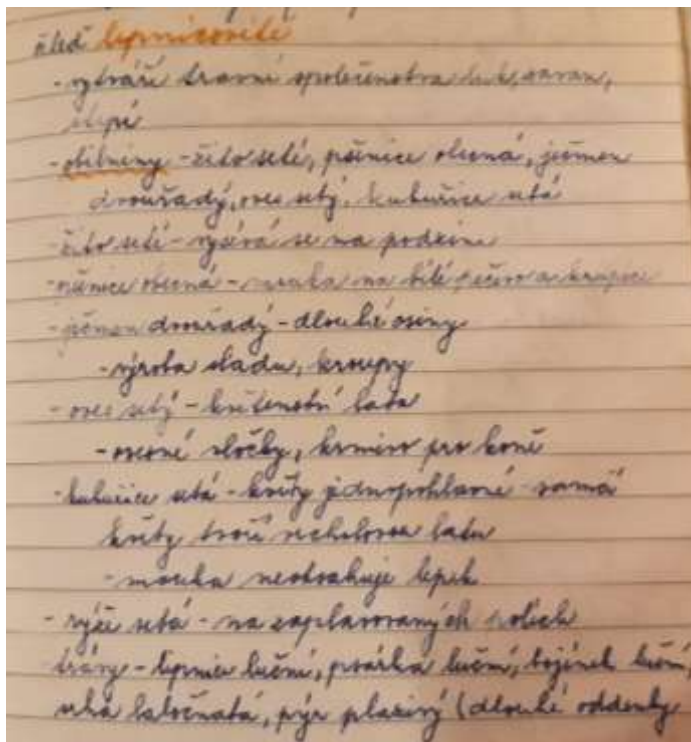 čleď lipnicovité
- vytváří travní společenstva luk, savan,
stepí
- obilniny - žito seté, pšenice obecná, ječmen
dvouřadý, oves setý, kukuřice setá
- žito seté - vysévá se na podzim
- pšenice obecná - mouka na bílé pečivo a krupice
- ječmen dvouřadý - dlouhé osiny
- výroba sladu, kroupy
- oves setý - květenství lata
- ovesné vločky, krmivo pro koně
- kukuřice setá - květy jednopohlavné - samčí
květy tvoří vrcholovou latu
- mouka neobsahuje lepek
- rýže setá - na zaplavovaných polích
trávy - lipnice luční, psárka luční, bojínek luční,
srha laločnatá, pýr plazivý (dlouhé oddenky